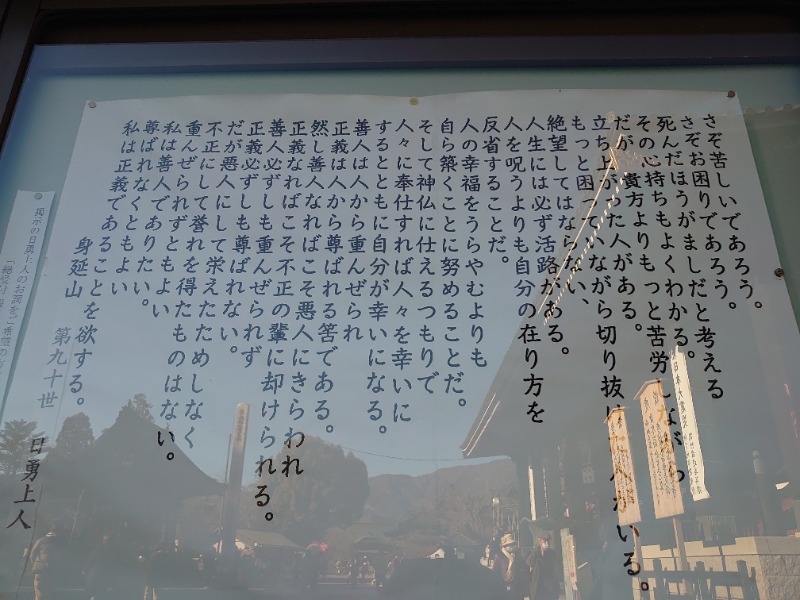 さぞ苦しいであろう。
さぞお困りであろう。
死んだほうがましだと考える
その心持ちもよくわかる。
だが、貴方よりもっと苦労しながら
立ち上がった人がある。
もっと困っていながら切り抜けた人がいる。
絶望してはならない、
人生には必ず活路がある。
人を呪うよりも自分の在り方を
反省することだ。
人の幸福をうらやむよりも
自ら築くことに努めることだ。
そして神仏に仕えるつもりで
人々に奉仕すれば人々を幸いに
するとともに自分が幸いになる。
善人は人から重んぜられ
正義は人から尊ばれる筈である。
然し善人なればこそ悪人にきらわれ
正義なればこそ不正の輩に却けられる。
善人必ずしも重んぜられず
正義必ずしも尊ばれない。
だが悪人にして栄えたためしなく
不正にして誉れを得たものはない。
重んぜられずともよい
私は善人でありたい。
尊ばれなくともよい
私は正義であることを欲する。
身延山 第九十世 日勇上人
掲示の日勇上人のお